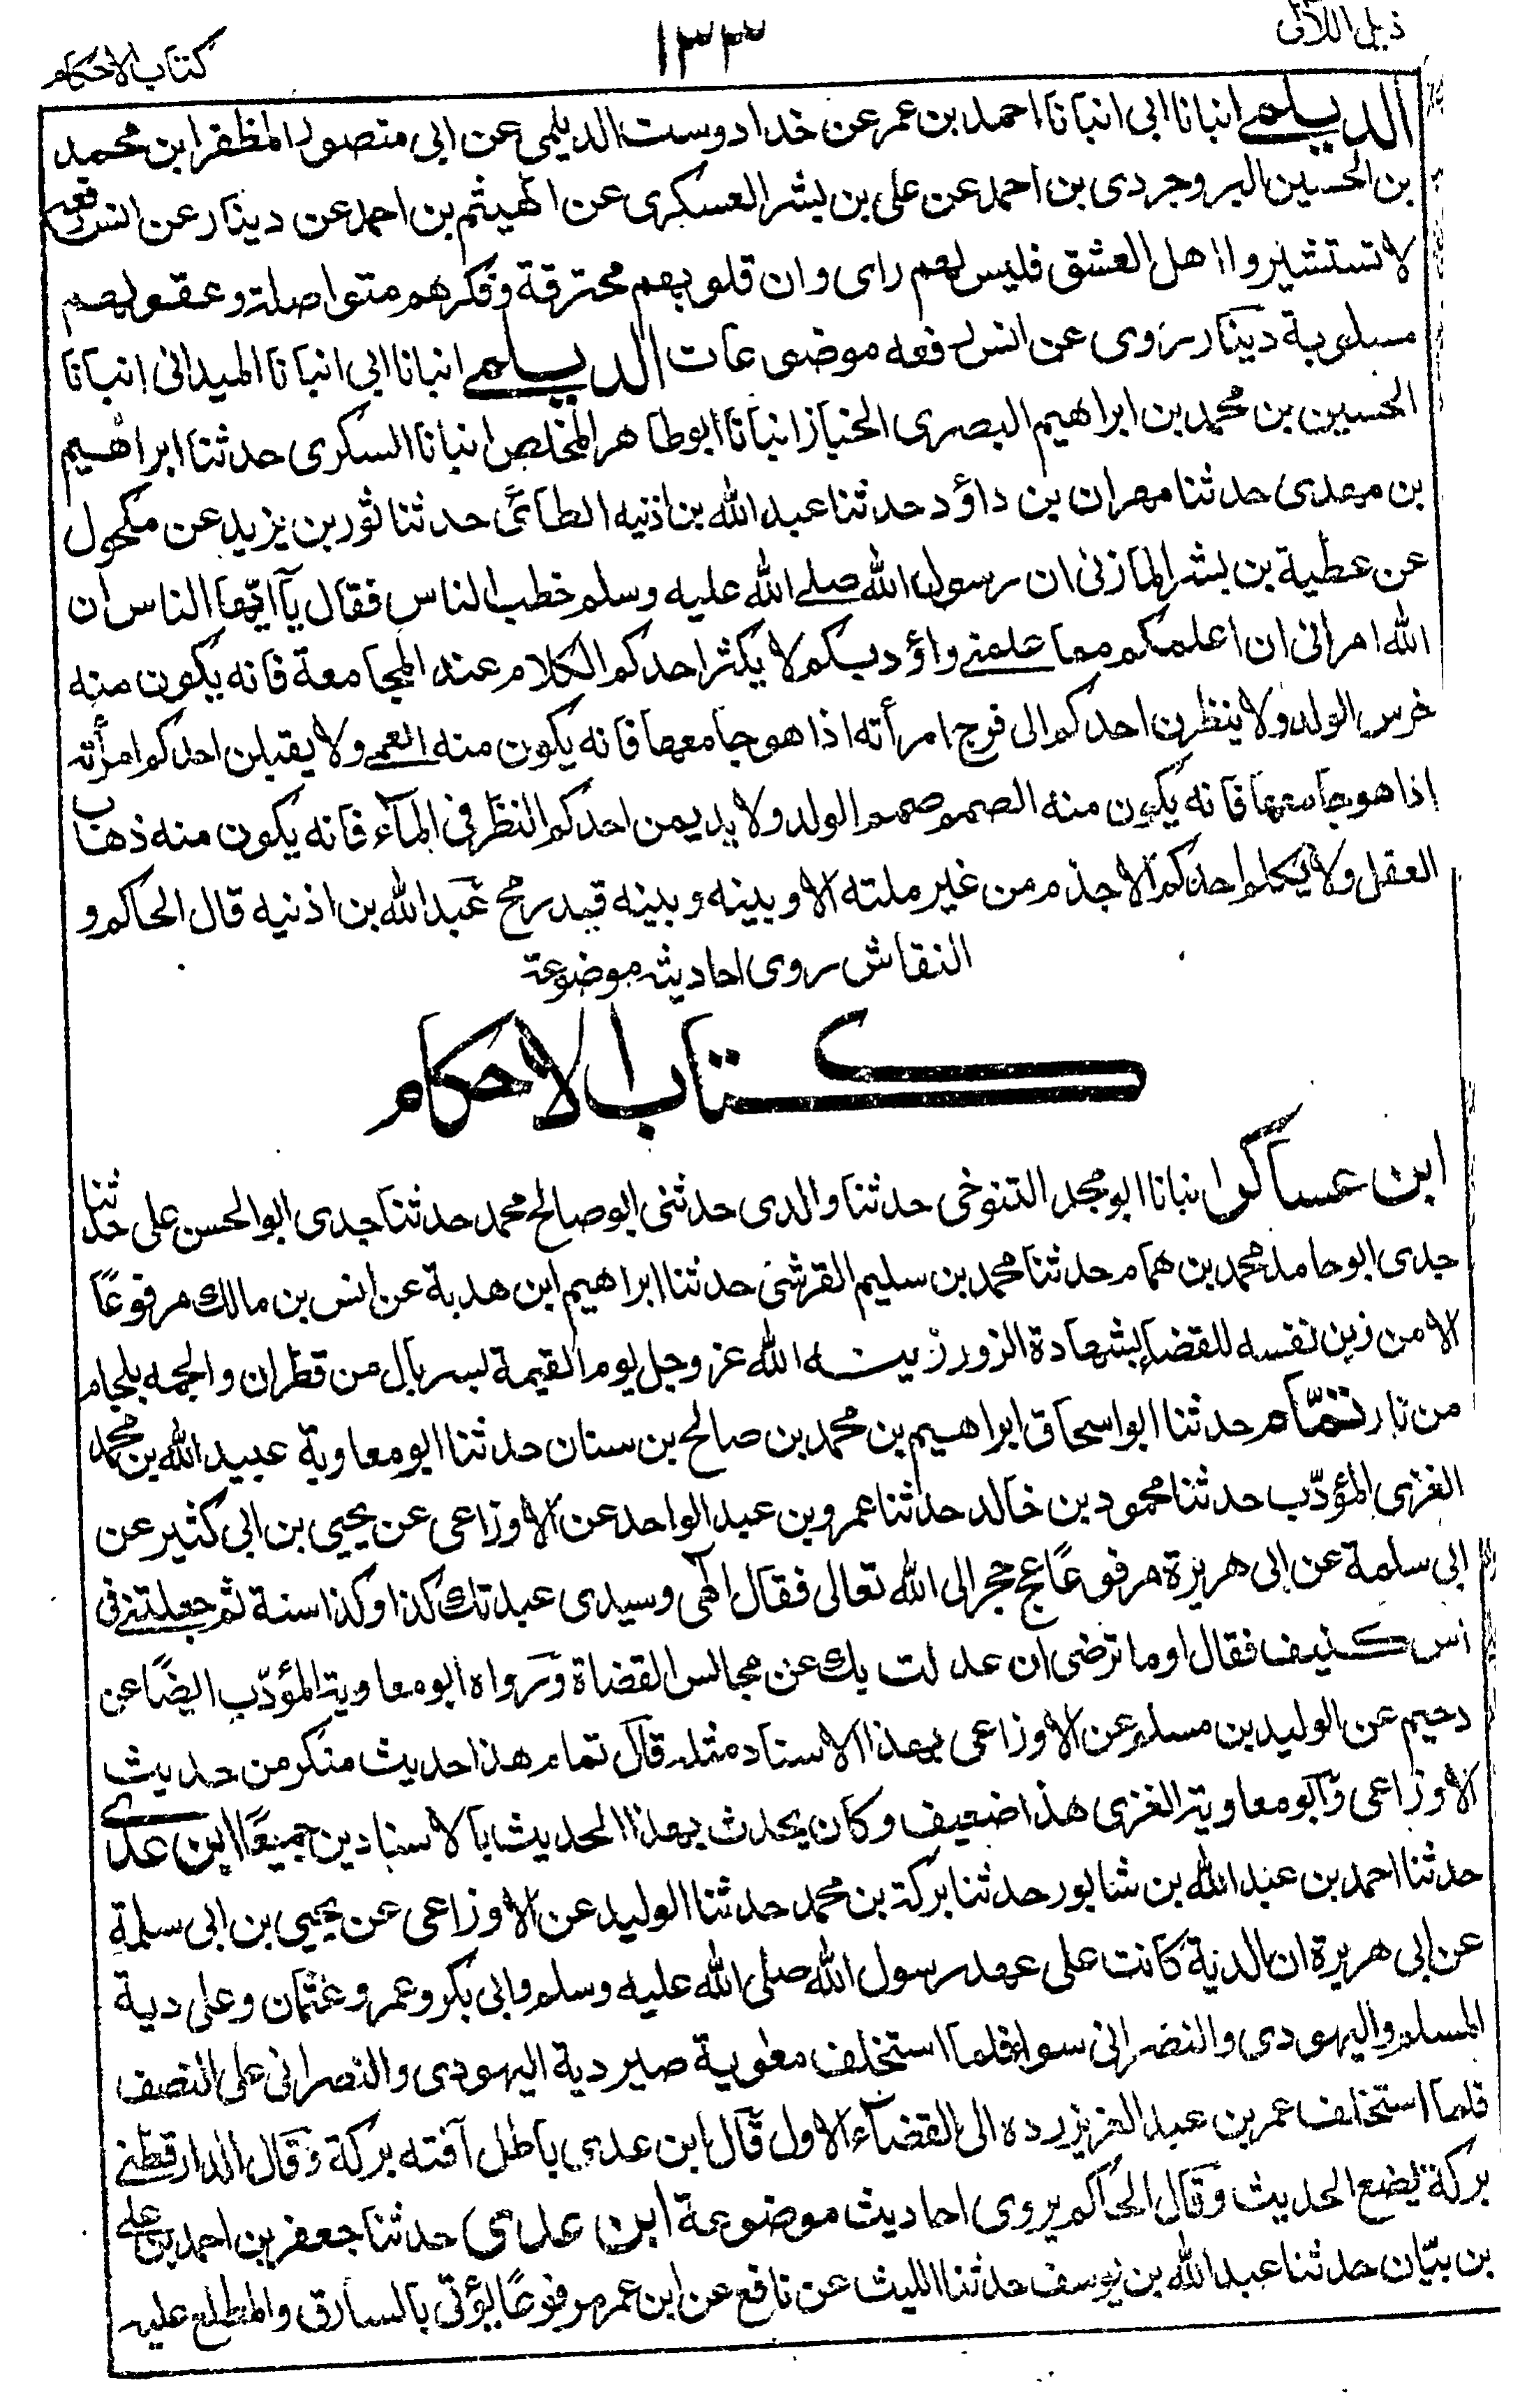 ذيل اللآلى
١٣٣
كتاب الاحكام
الديلمى انبانا ابى انبانا احمد بن عمر عن خدا دوست الديلمى عن ابى منصور المظفر ابن محمد
بن الحسين البروجردى بن احمد عن على بن بشر العسكرى عن الهيثم بن احمد عن دينار عن انس رفعه
لا تستشيروا اهل العشق فليس لهم راى وان قلوبهم محترقة وفكرهم متواصلة وعقولهم
مسلوبة دينار روى عن انس رفعه موضوعات الديلمى انبانا ابى انبانا الميدانى انبانا
الحسين بن محمد بن ابراهيم البصرى الخباز انبانا ابو طاهر المخلص انبانا السكرى حدثنا ابراهيم
بن مهدى حدثنا مهران بن داؤد حدثنا عبد الله بن اذنيه الطائى حدثنا ثور بن يزيد عن مكحول
عن عطية بن بشر المازنى ان رسول الله صلى الله عليه وسلم خطب الناس فقال يآ ايها الناس ان
الله امرانى ان اعلمكم مما علمنى واؤدبكم لا يكثر احدكم الكلام عند المجامعة فانه يكون منه
خرس الولد ولا ينظرن احدكم الى فرج امرأته اذا هو جامعها فانه يكون منه العمى ولا يقبلن احدكم امرأته
اذا هو جامعها فانه يكون منه الصمم صمم الولد ولا يديمن احدكم النظر فى المآء فانه يكون منه ذهاب
العقل ولا يكلم احدكم الاجذم من غير ملته الا وبينه وبينه قيد رمح عبد الله بن اذنيه قال الحاكم و
النقاش روى احاديث موضوعة
كتاب الاحكام
ابن عساكر انبانا ابو محمد التنوخى حدثنا والدى حدثنى ابو صالح محمد حدثنا جدى ابو الحسن على حدثنا
جدى ابو حامد محمد بن همام حدثنا محمد بن سليم القرشى حدثنا ابراهيم ابن هدبة عن انس بن مالك مرفوعًا
الا من زين نفسه للقضاء بشهادة الزور زينه الله عز وجل يوم القيمة بسربال من قطران والجمه بلجام
من نار تمّام حدثنا ابو اسحاق ابراهيم بن محمد بن صالح بن سنان حدثنا ابو معاوية عبيد الله بن محمد
الغزى المؤدّب حدثنا محمود بن خالد حدثنا عمرو بن عبد الواحد عن الاوزاعى عن يحيى بن ابى كثير عن
ابى سلمة عن ابى هريرة مرفوعًا عج حجر الى الله تعالى فقال الهى وسيدى عبدتك كذا وكذا سنة ثم جعلتنى فى
اس كنيف فقال او ما ترضى ان عدلت بك عن مجالس القضاة ورواه ابو معاوية المؤدّب ايضًا عن
دحيم عن الوليد بن مسلم عن الاوزاعى بهذا الاسناد مثله قال تمام هذا حديث منكر من حديث
الاوزاعى وابو معاوية الغزى هذا ضعيف وكان يحدث بهذا الحديث بالاسنادين جميعًا ابن عدى
حدثنا احمد بن عبد الله بن شابور حدثنا بركة بن محمد حدثنا الوليد عن الاوزاعى عن يحيى بن ابى سلمة
عن ابى هريرة ان الدية كانت على عهد رسول الله صلى الله عليه وسلم وابى بكر وعمر وعثمان وعلى دية
المسلم واليهودى والنصرانى سواء فلما استخلف معوية صير دية اليهودى والنصرانى على النصف
فلما استخلف عمر بن عبد العزيز رده الى القضآء الاول قال ابن عدى باطل آفته بركة وقال الدارقطنى
بركة يضع الحديث وقال الحاكم يروى احاديث موضوعة ابن عدى حدثنا جعفر بن احمد بن على
بن بيّان حدثنا عبد الله بن يوسف حدثنا الليث عن نافع عن ابن عمر مرفوعًا يؤتى بالسارق والمطلع عليه